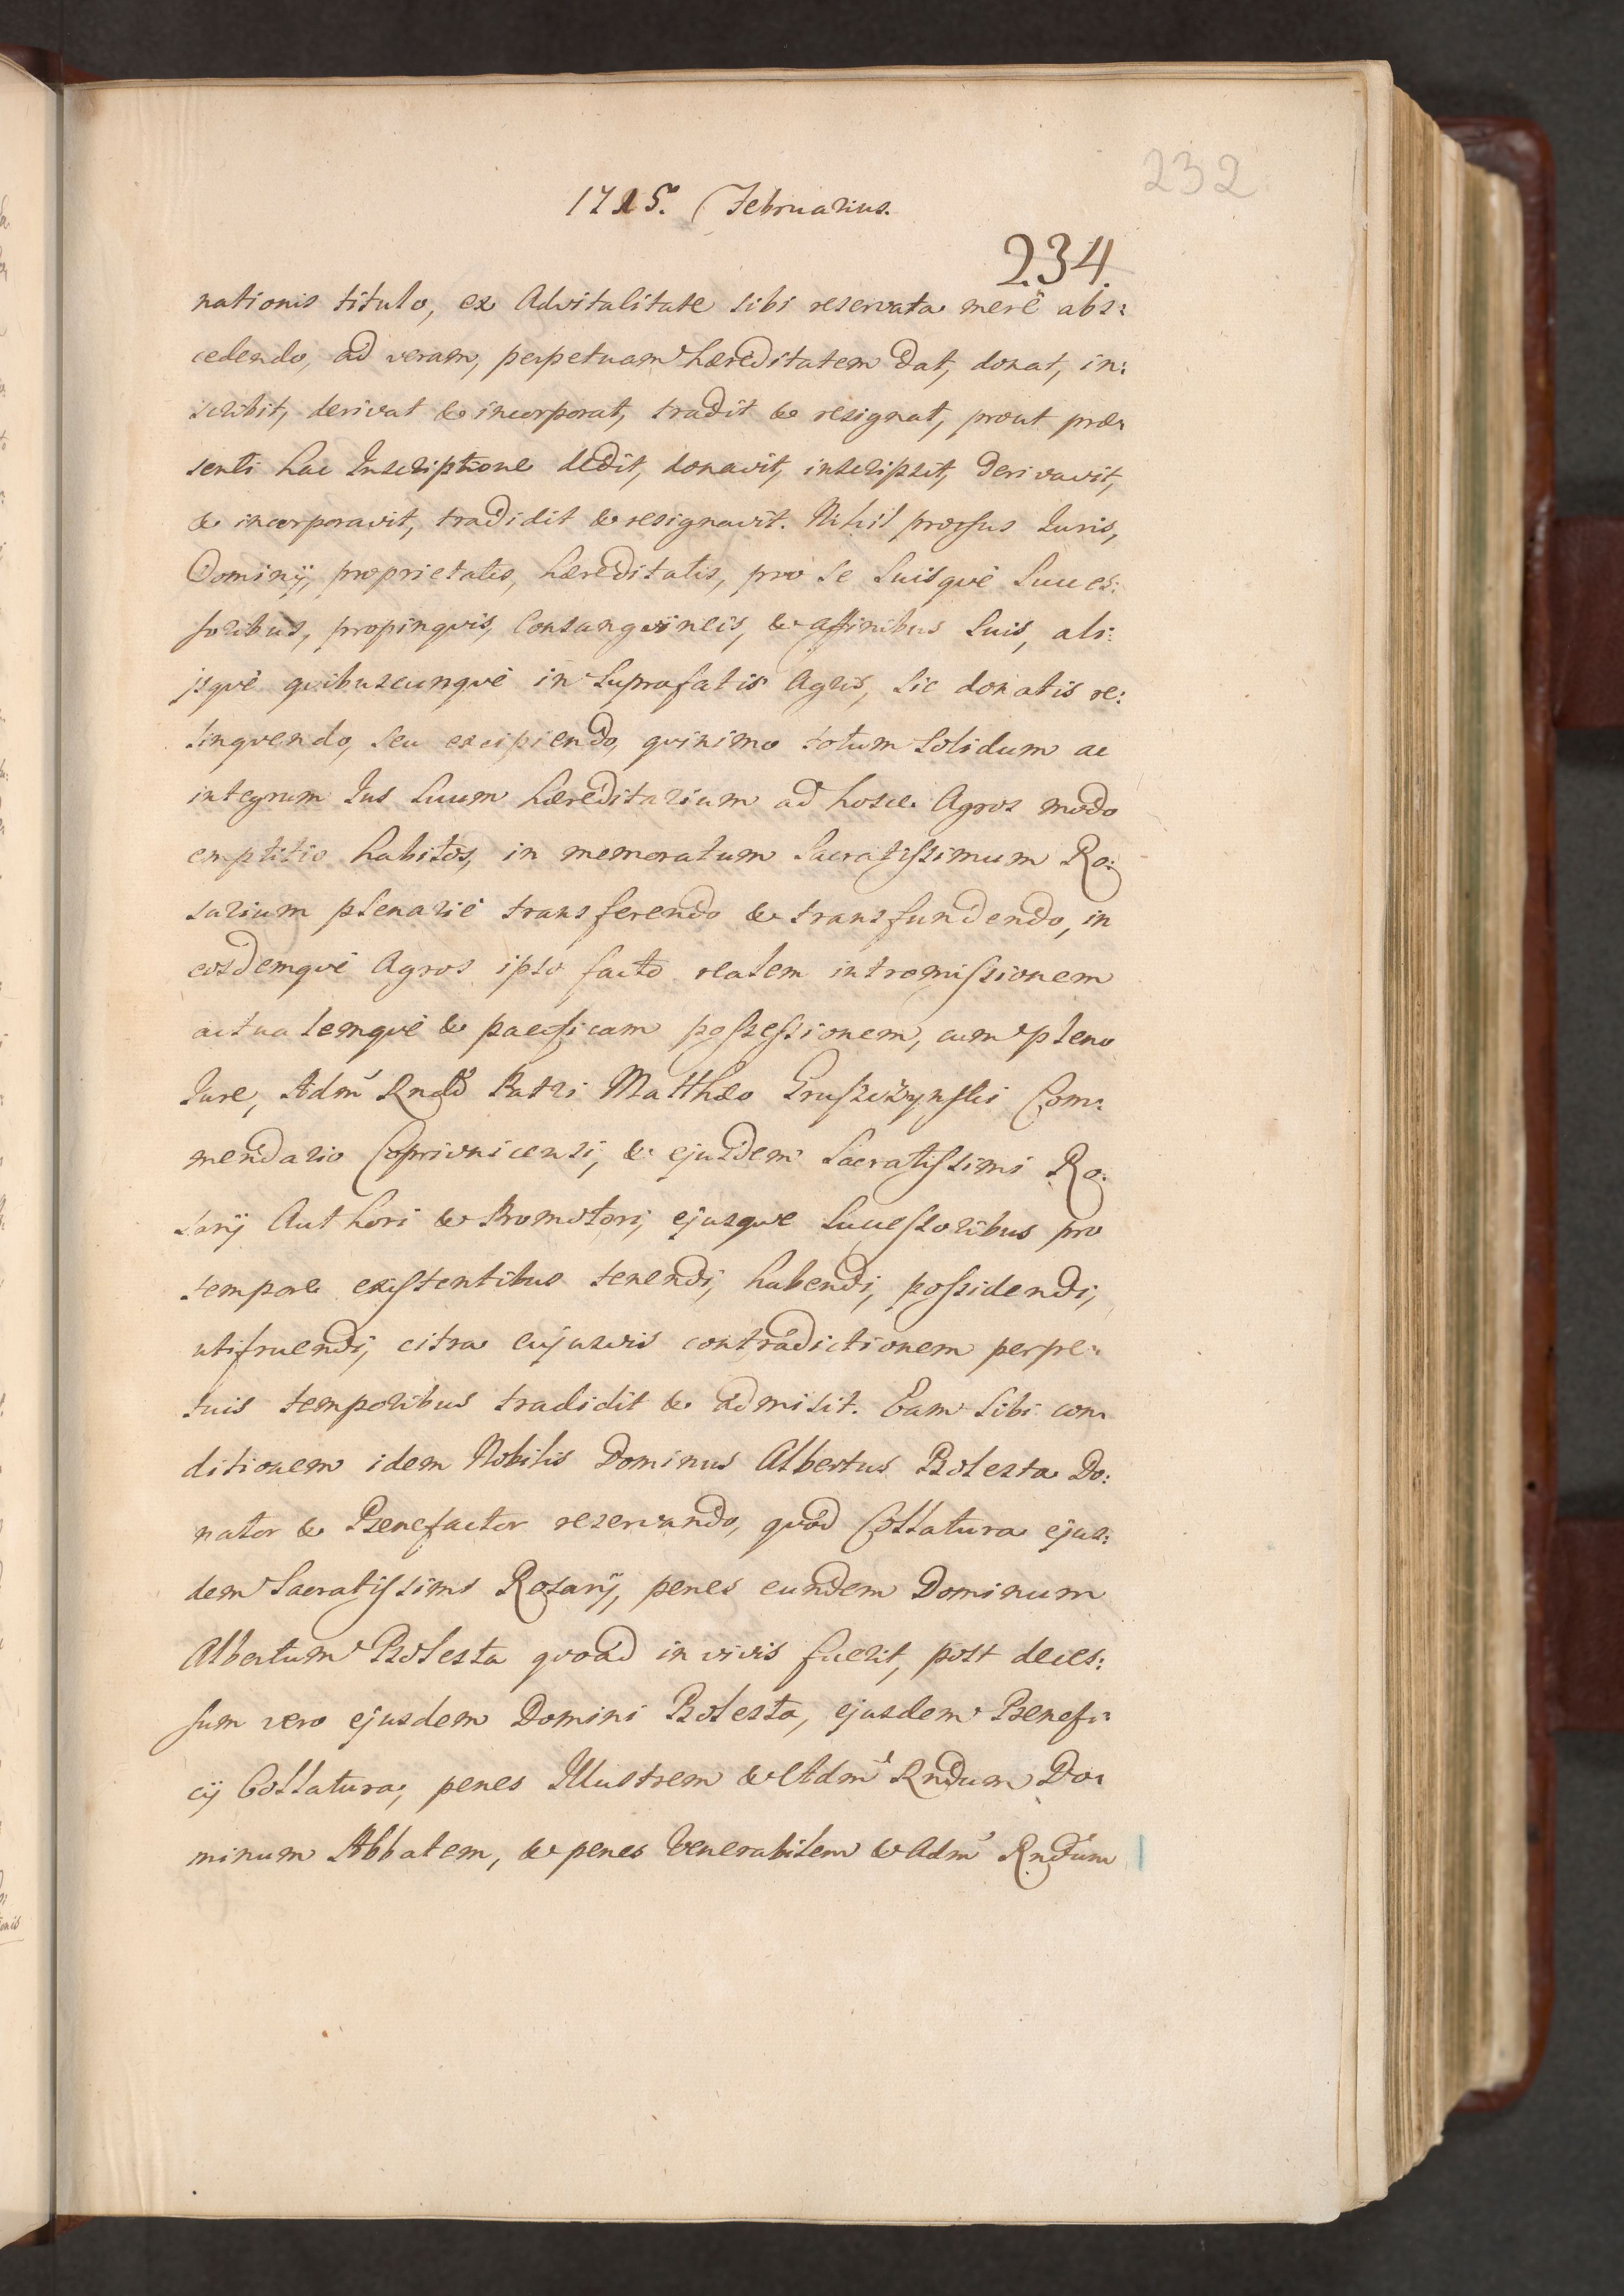 232
1725. Februarius.
234.
nationis titulo, ex Advitalitate sibi reservata merè abs:
cedendo, ad veram, perpetuam hæreditatem dat, donat, in:
scribit, derivat & incorporat, tradit & resignat, prout præ:
senti hac Inscriptione dedit, donavit, inscripsit, derivavit,
& incorporavit, tradidit & resignavit. Nihil prorsus Iuris,
Dominij, proprietatis, hæreditatis, pro se suisquè succes:
soribus, propinquis, Consangvineis, & affinibus suis, ali:
jsquè quibuscunquè in suprafatis Agris, sic donatis re:
linquendo, seu excipiendo, quinimo totum solidum ac
integrum Ius suum hæreditarium ad hosce Agros modo
emptitio habitos, in memoratum Sacratissimum Ro:
sarium plenariè transferendo & transfundendo, in
eosdemquè Agros ipso facto realem intromissionem
actualemquè & pacificam possessionem, cum pleno
Iure, Adm Rndo Patri Matthæo Gruszczynski Com:
mendario Coprivnicensi, & ejusdem Sacratissimi Ro:
sarij Authori & Promotori, ejusque successoribus pro
tempore existentibus tenendi, habendi, possidendi,
utifruendi, citra cujusvis contradictionem perpe:
tuis temporibus tradidit & admisit. Eam sibi con:
ditionem idem Nobilis Dominus Albertus Bolesta Do:
nator & Benefactor reservando, quòd Collatura ejus:
dem Sacratissimi Rosarij, penes eundem Dominum
Albertum Bolesta quoad in vivis fuerit, post deces:
sum vero ejusdem Domini Bolesta, ejusdem Benefi:
cij Collatura, penes Illustrem & Adm Rndum Do:
minum Abbatem, & penes Venerabilem & Adm Rndum